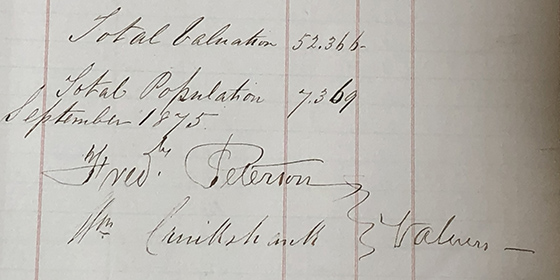 Total Valuation 52.366-
Total Population 7.369
September 1875.
Fredk. Peterson
Wm Cruikshank } Valuers —